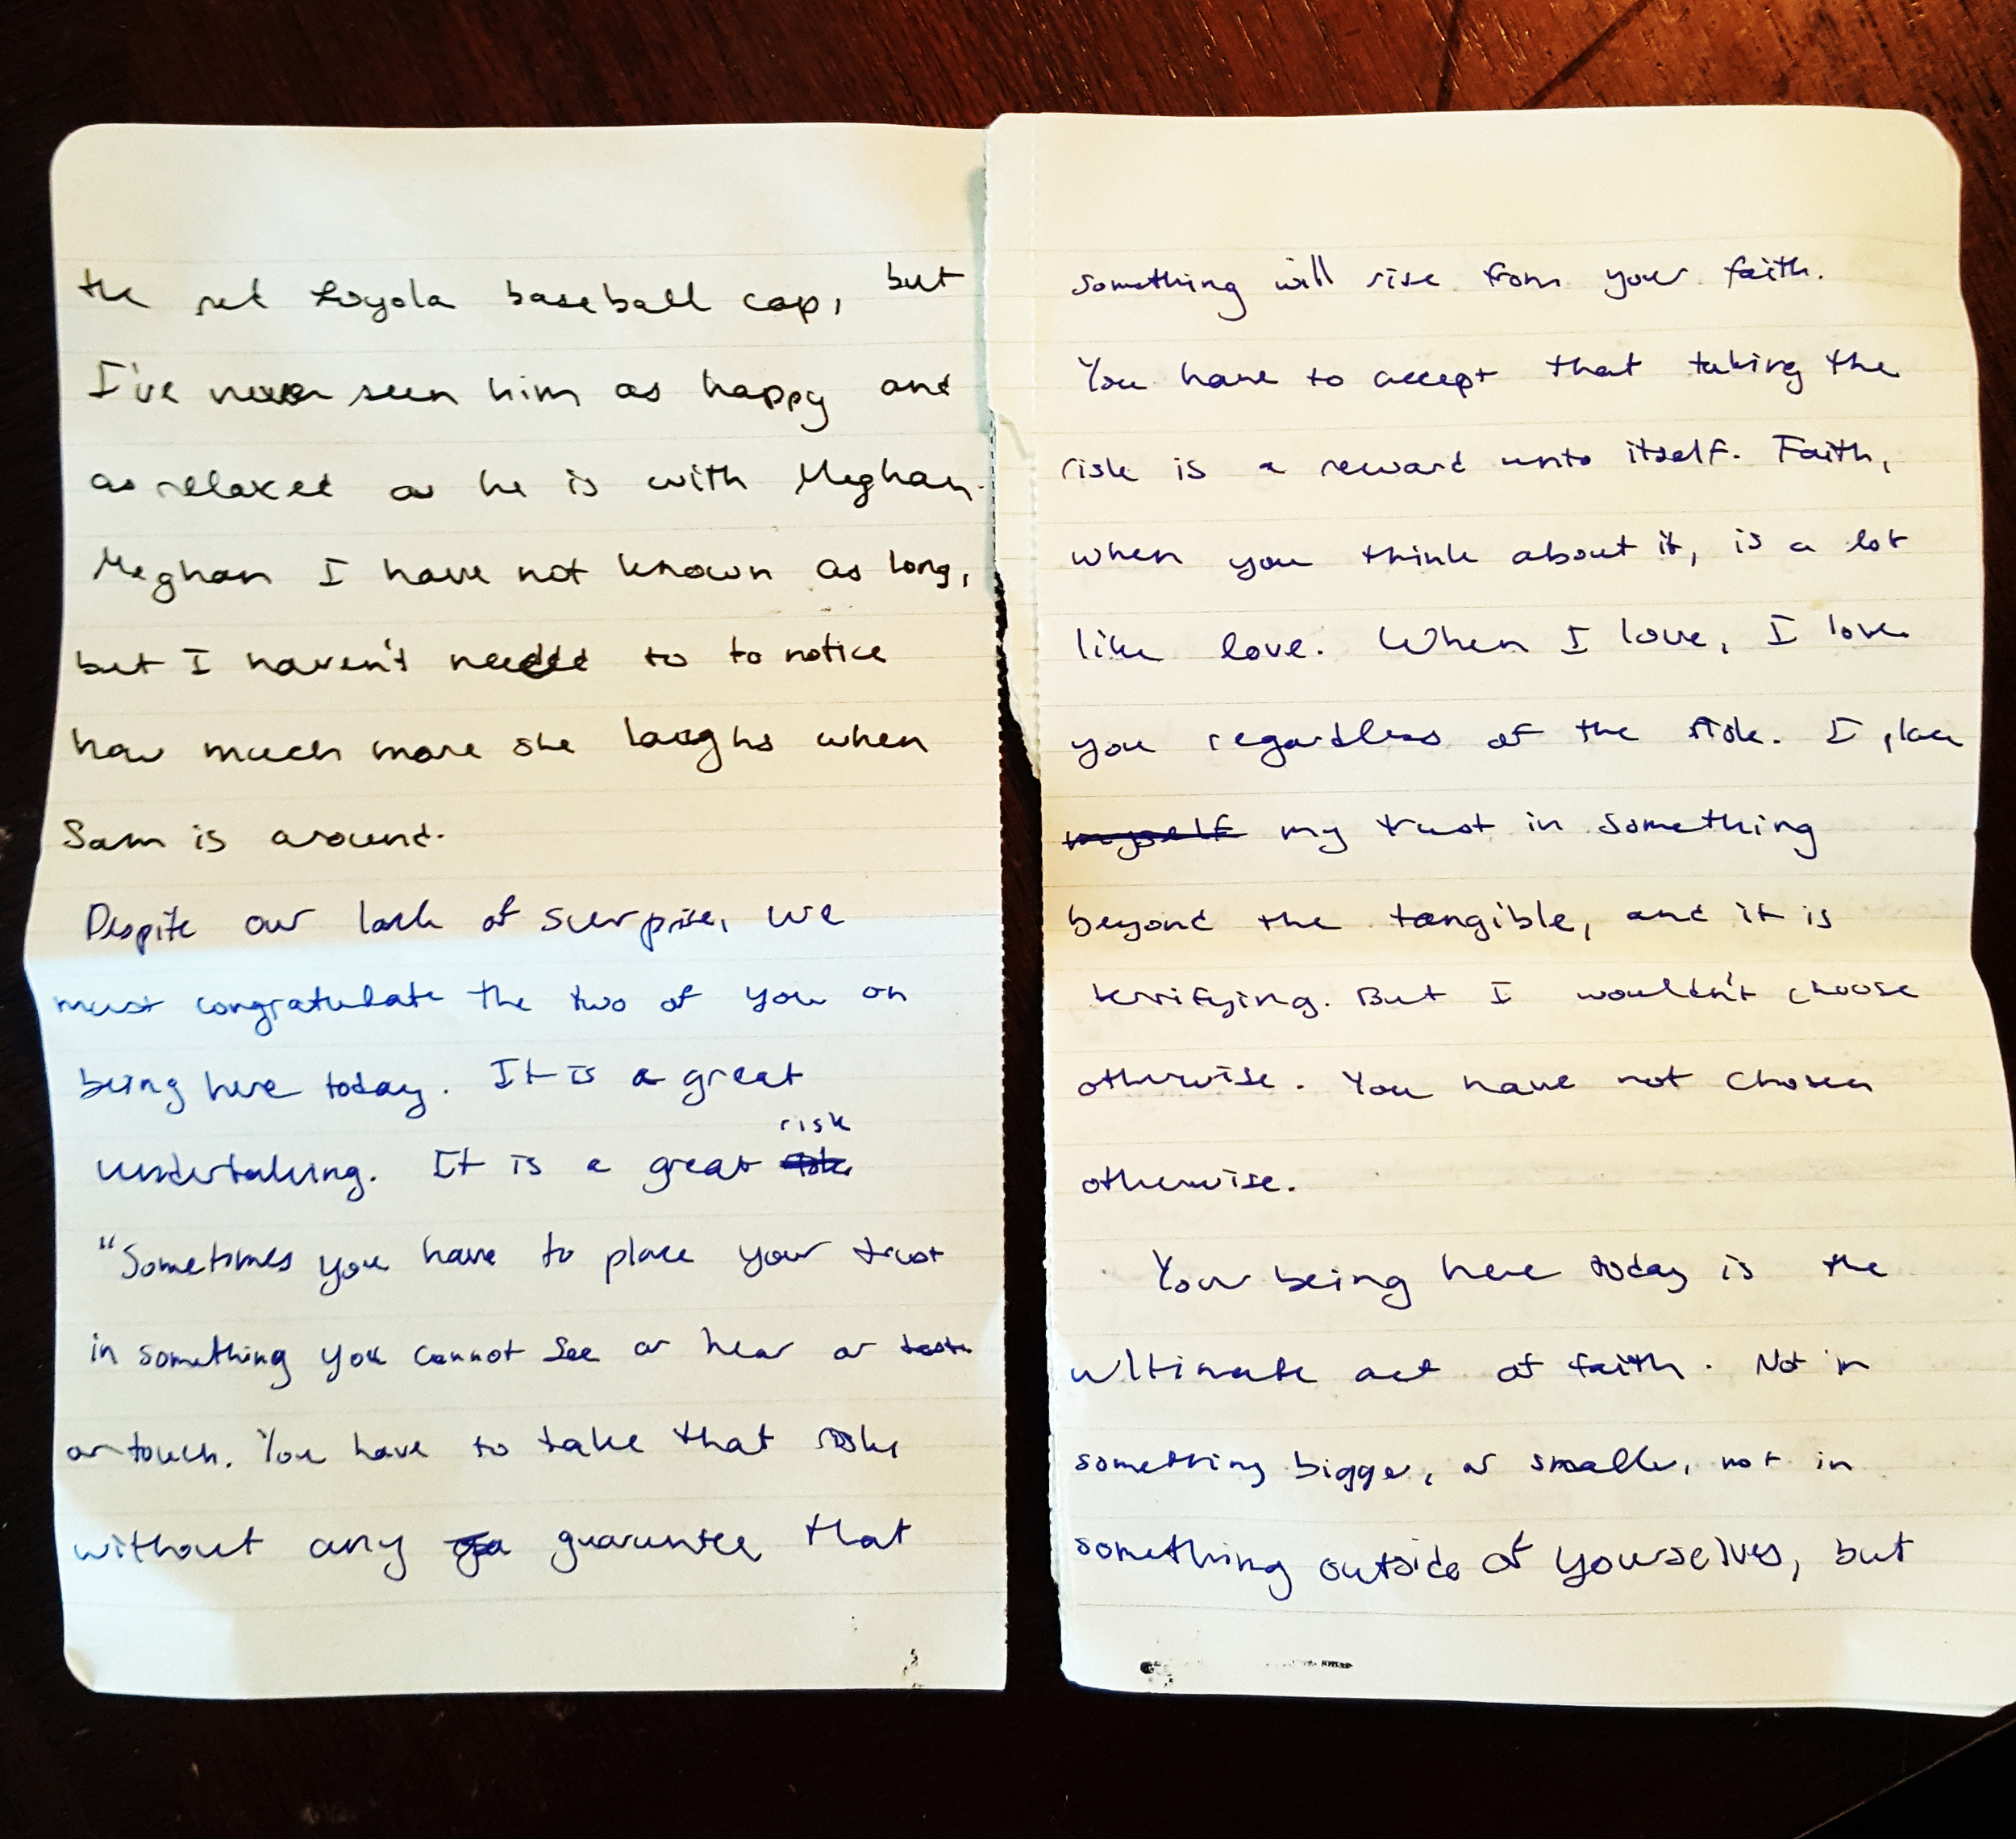 the red Loyola baseball cap, but
I've never seen him as happy and
as relaxed as he is with Meghan.
Meghan I have not known as long,
but I haven't needed to to notice
how much more she laughs when
Sam is around.
Despite our lack of surprise, we
must congratulate the two of you on
being here today. It is a great
risk
undertaking. It is a great
"Sometimes you have to place your trust
in something you cannot see or hear or taste
or touch. You have to take that risk
without any guarantee that
something will rise from your faith.
You have to accept that taking the
risk is a reward unto itself. Faith,
when you think about it, is a lot
like love. When I love, I love
you regardless of the risk. I place
myself my trust in something
beyond the tangible, and it is
terrifying. But I wouldn't choose
otherwise. You have not chosen
otherwise.
Your being here today is the
ultimate act of faith. Not in
something bigger, or smaller, not in
something outside of yourselves, but